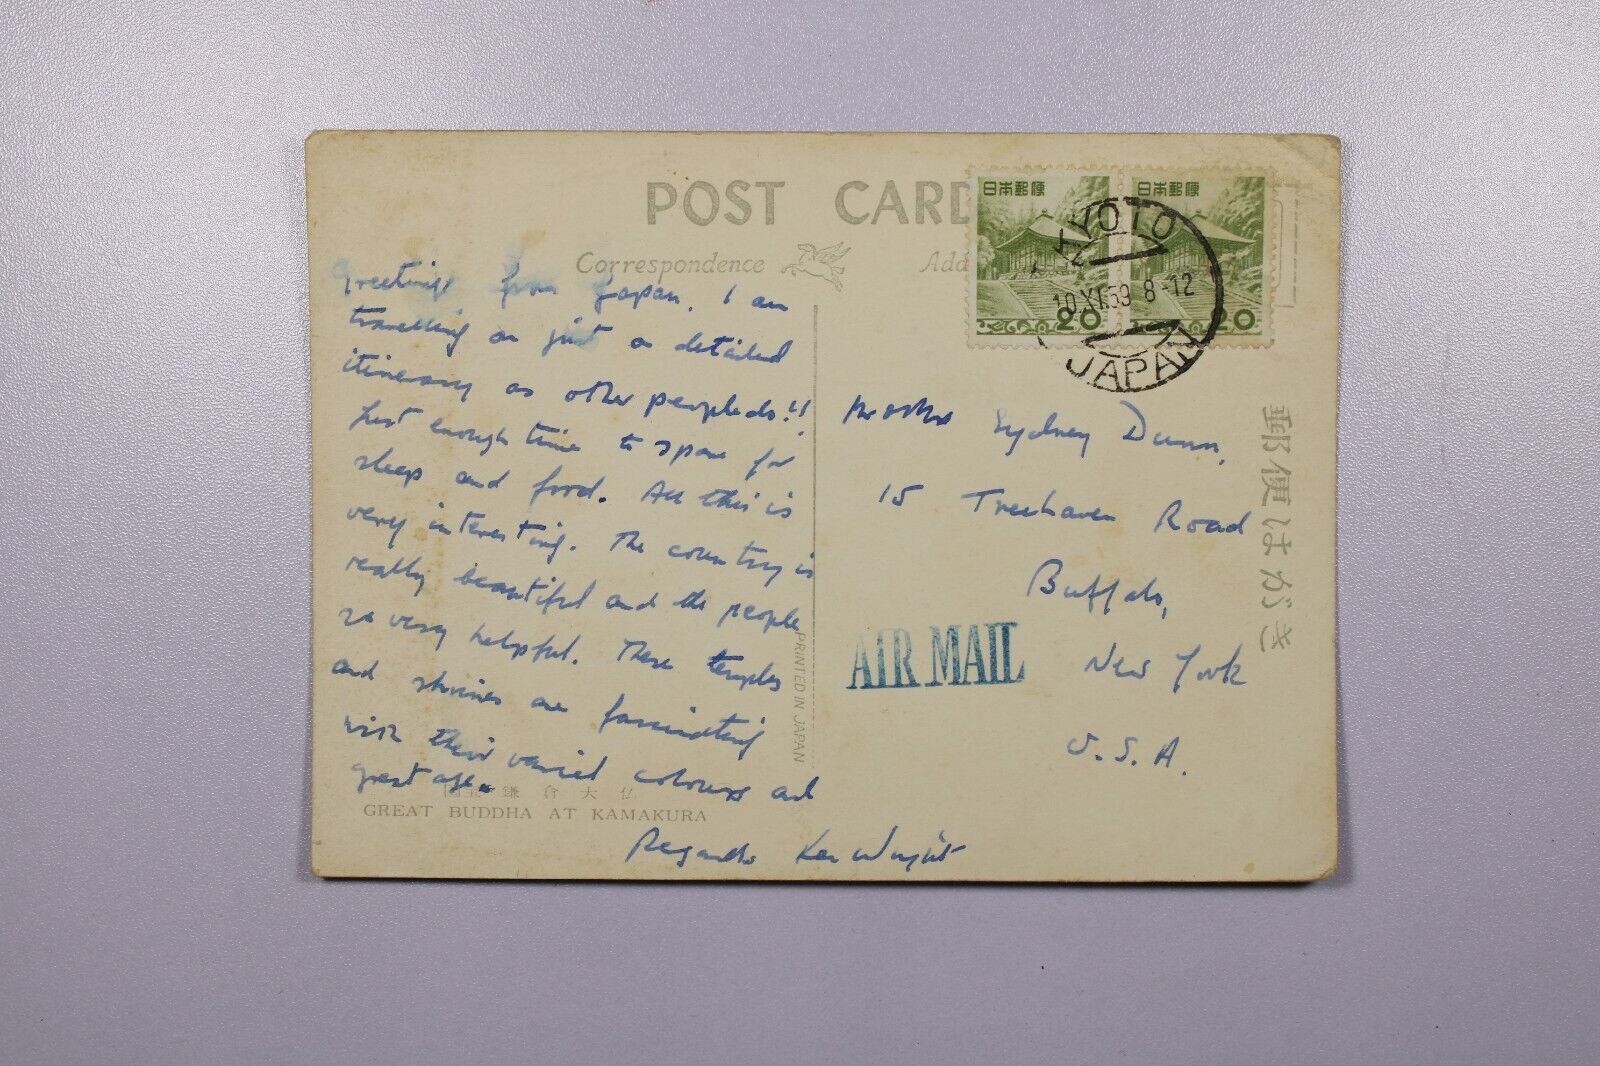 POST CARD
Correspondence
Add
日本郵便
20
日本郵便
20
KYOTO
10.XI.59 8-12
JAPAN
Greetings from Japan. I am
travelling on just a detailed
itinerary as other people do!!
Just enough time to spare for
sleep and food. All this is
very interesting. The country is
really beautiful and the people
so very helpful. These temples
and shrines are fascinating
with their varied colours and
great age.
Regards Ken Wright
Mr & Mrs Sydney Dunn,
15 Treehaven Road
Buffalo,
New York
U.S.A.
AIR MAIL
郵便はがき
PRINTED IN JAPAN
鎌倉大仏
GREAT BUDDHA AT KAMAKURA